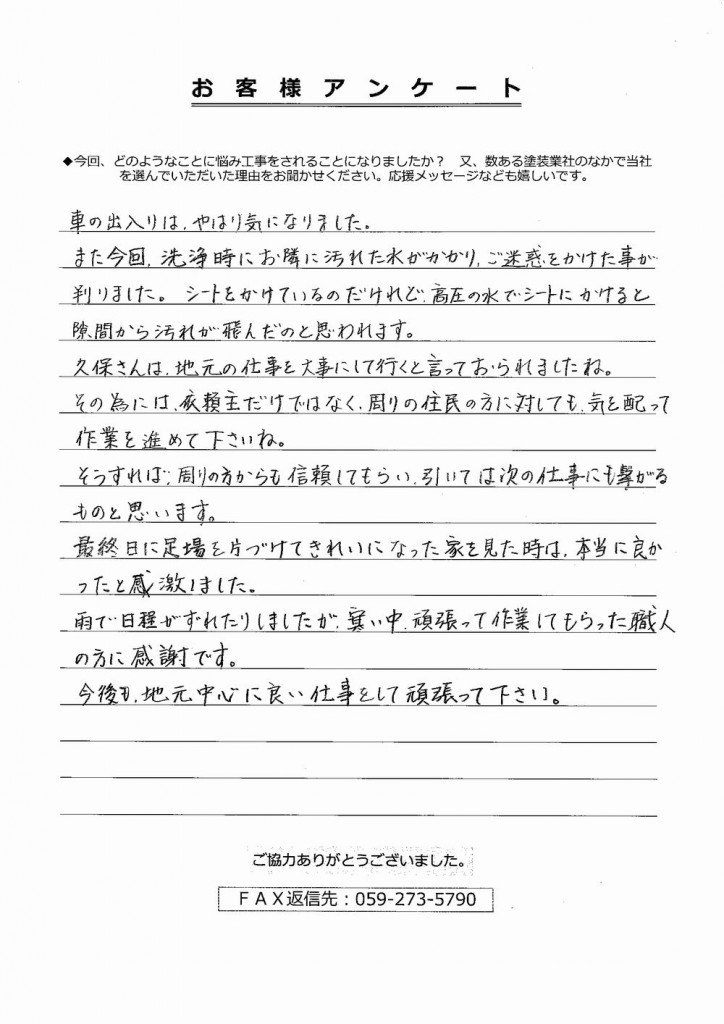 お客様アンケート
◆今回、どのようなことに悩み工事をされることになりましたか？　又、数ある塗装業社のなかで当社
を選んでいただいた理由をお聞かせください。応援メッセージなども嬉しいです。
車の出入りは、やはり気になりました。
また今回、洗浄時にお隣に汚れた水がかかり、ご迷惑をかけた事が
判りました。シートをかけているのだけれど、高圧の水でシートにかけると
隙間から汚れが飛んだのと思われます。
久保さんは、地元の仕事を大事にして行くと言っておられましたね。
その為には、依頼主だけではなく、周りの住民の方に対しても、気を配って
作業を進めて下さいね。
そうすれば、周りの方からも信頼してもらい、引いては次の仕事にも繋がる
ものと思います。
最終日に足場を片づけてきれいになった家を見た時は、本当に良か
ったと感激しました。
雨で日程がずれたりしましたが、寒い中、頑張って作業してもらった職人
の方に感謝です。
今後も、地元中心に良い仕事をして頑張って下さい。
ご協力ありがとうございました。
ＦＡＸ返信先：059-273-5790